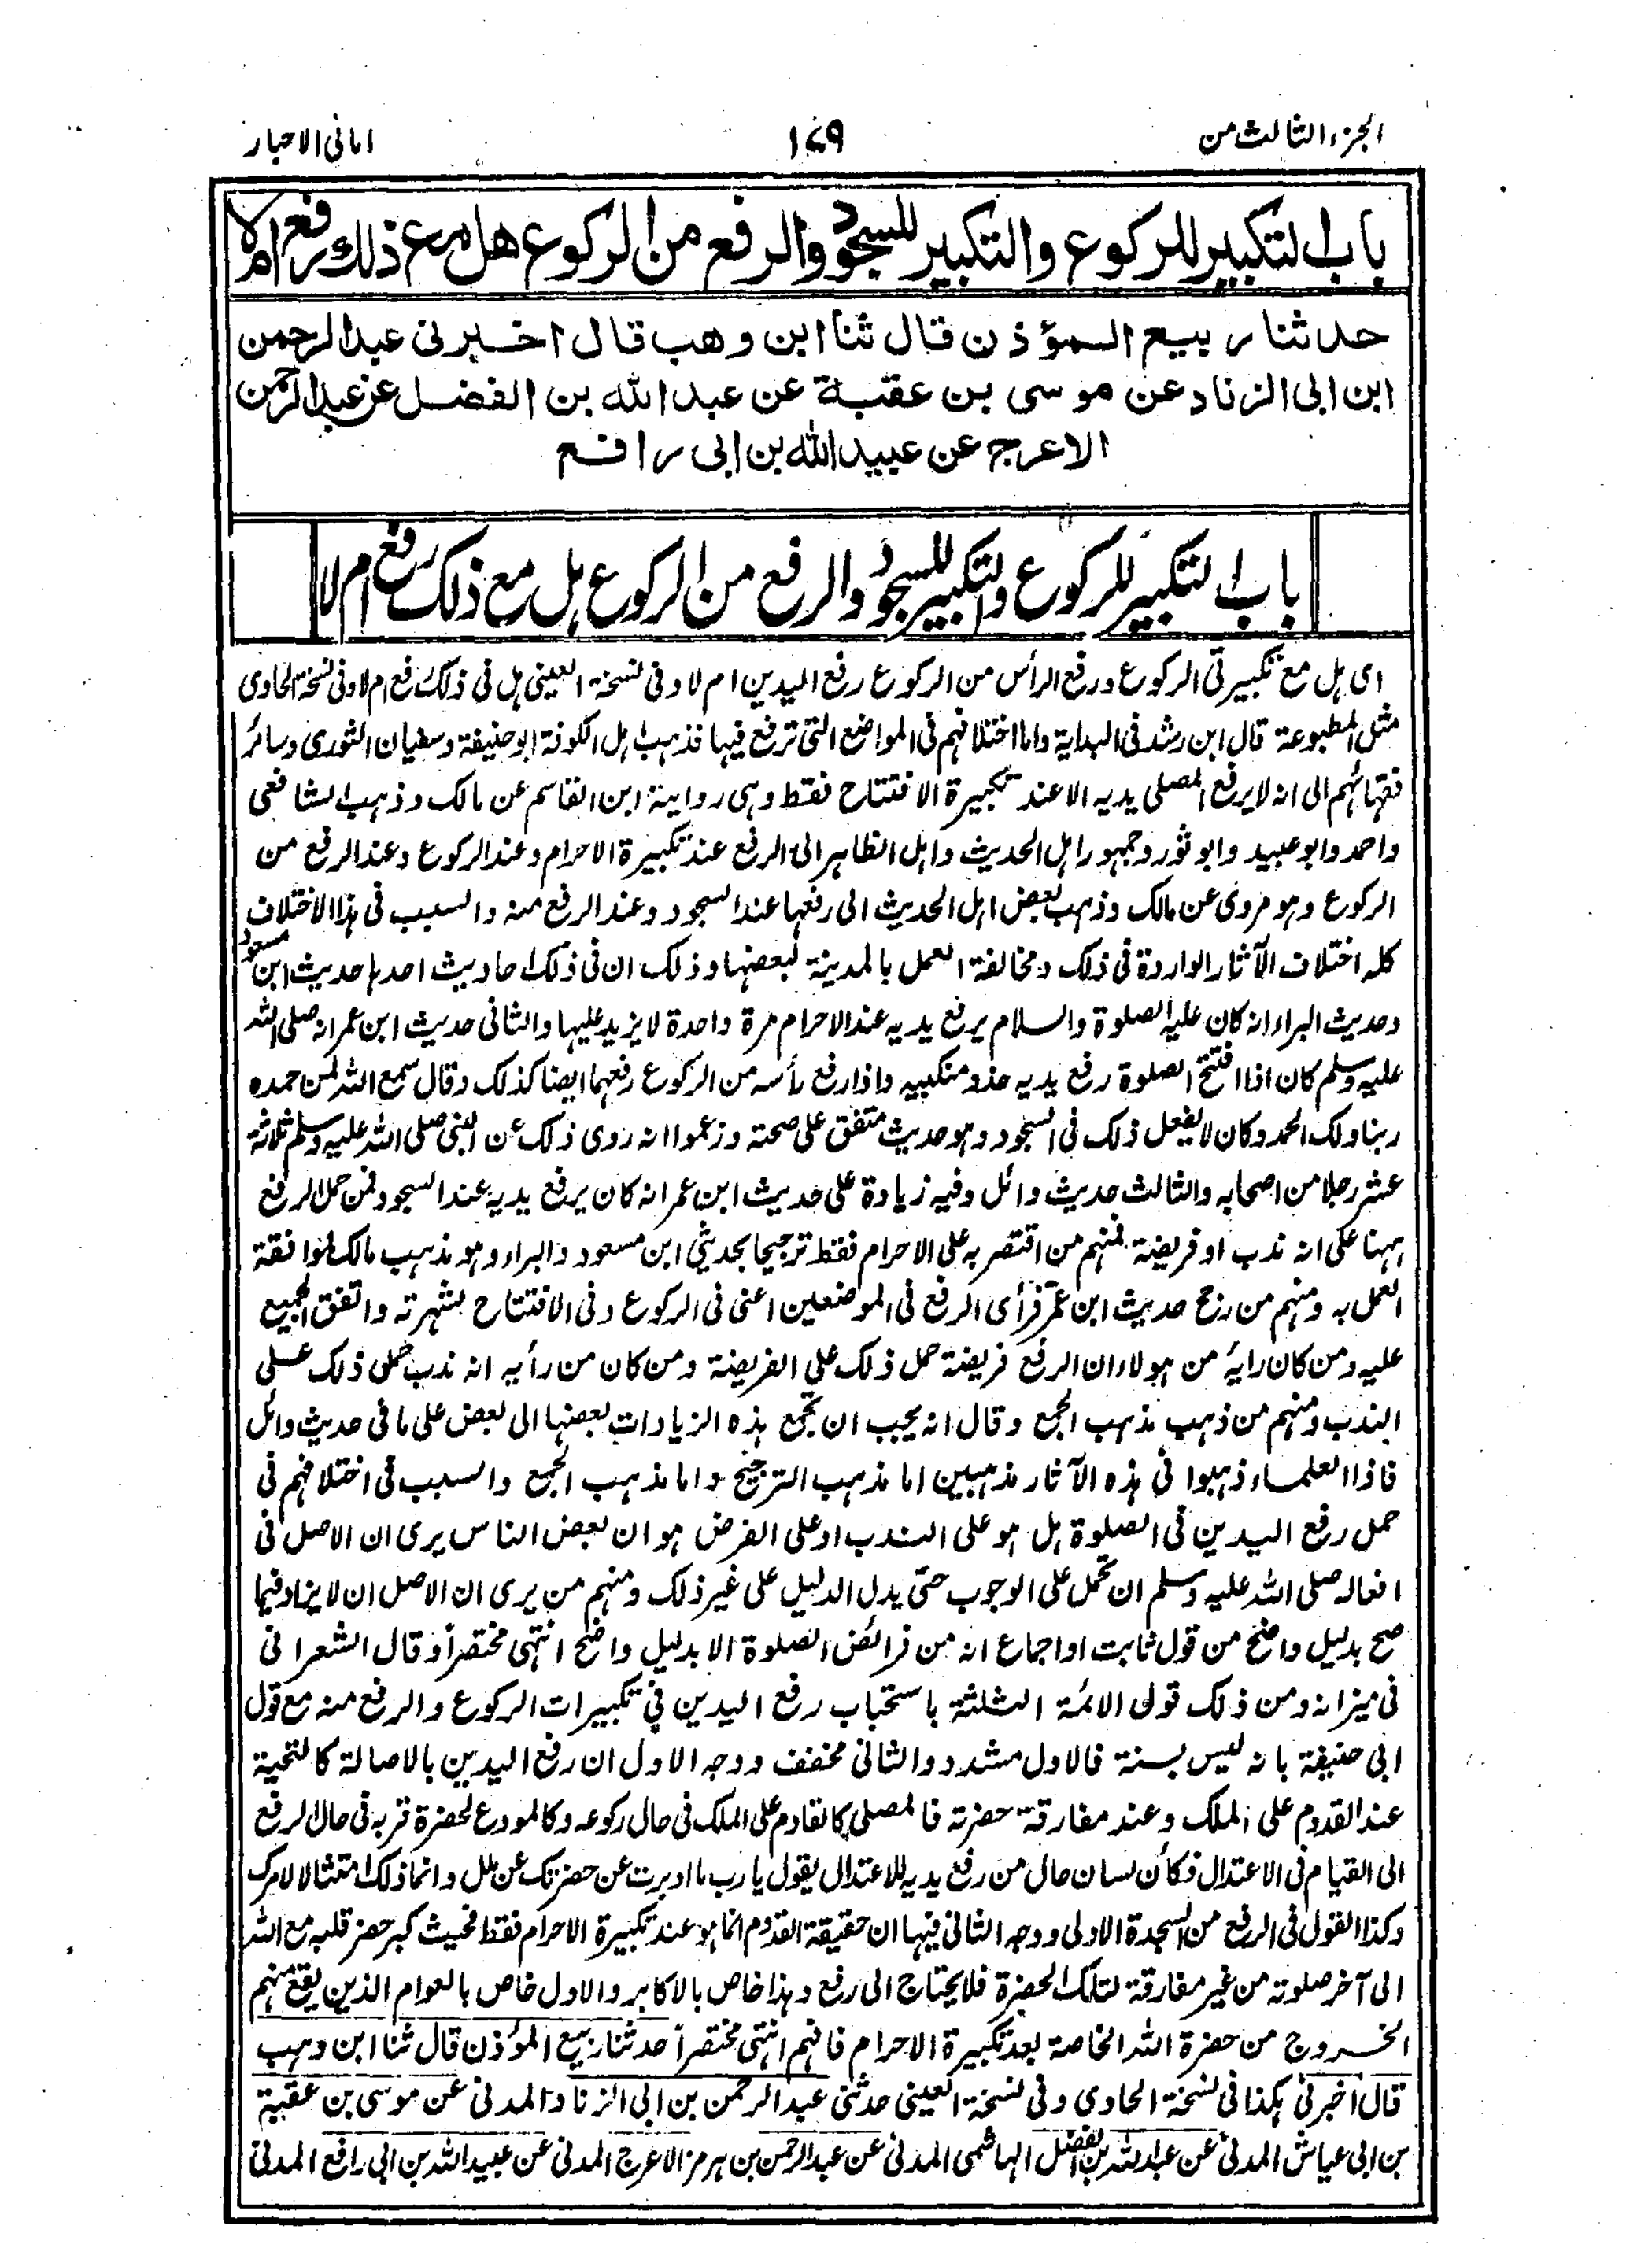 الجزء الثالث من ۱۷۹ امانی الاحبار
باب التكبير للركوع والتكبير للسجود والرفع من الركوع هل مع ذلك رفع ام لا
حدثنا ربيع المؤذن قال ثنا ابن وهب قال اخبرنی عبد الرحمن
ابن ابی الزناد عن موسى بن عقبة عن عبد الله بن الفضل عن عبد الرحمن
الاعرج عن عبيد الله بن ابی رافع
باب التكبير للركوع والتكبير للسجود والرفع من الركوع ہل مع ذلک رفع ام لا
ای ہل مع تکبیرتی الرکوع ورفع الرأس من الرکوع رفع الیدین ام لا وفی نسخة العینی ہل فی ذلک رفع ام لا وفی نسخة الحاوی
مثل المطبوعة قال ابن رشد فی البدایة واما اختلافہم فی المواضع التی ترفع فیہا فذہب اہل الکوفة ابو حنیفة وسفیان الثوری وسائر
فقہائہم الی انہ لا یرفع المصلی یدیہ الا عند تکبیرة الافتتاح فقط وہی روایة ابن القاسم عن مالک وذہب الشافعی
واحمد وابو عبید وابو ثور وجمہور اہل الحدیث واہل الظاہر الی الرفع عند تکبیرة الاحرام وعند الرکوع وعند الرفع من
الرکوع وہو مروی عن مالک وذہب بعض اہل الحدیث الی رفعہا عند السجود وعند الرفع منہ والسبب فی ہذا الاختلاف
کلہ اختلاف الآثار الواردة فی ذلک ومخالفة العمل بالمدینة لبعضہا وذلک ان فی ذلک احادیث احدہا حدیث ابن مسعود
وحدیث البراء انہ کان علیہ الصلوة والسلام یرفع یدیہ عند الاحرام مرة واحدة لا یزید علیہا والثانی حدیث ابن عمر انہ صلی اللہ
علیہ وسلم کان اذا افتتح الصلوة رفع یدیہ حذو منکبیہ واذا رفع رأسہ من الرکوع رفعہما ایضا کذلک وقال سمع اللہ لمن حمدہ
ربنا ولک الحمد وکان لا یفعل ذلک فی السجود وہو حدیث متفق علی صحتہ وزعموا انہ روی ذلک عن النبی صلی اللہ علیہ وسلم ثلاثة
عشر رجلا من اصحابہ والثالث حدیث وائل وفیہ زیادة علی حدیث ابن عمر انہ کان یرفع یدیہ عند السجود فمن حمل الرفع
ہہنا علی انہ ندب او فریضة فمنہم من اقتصر بہ علی الاحرام فقط ترجیحا بحدیثی ابن مسعود والبراء وہو مذہب مالک لموافقة
العمل بہ ومنہم من رجح حدیث ابن عمر فرأی الرفع فی الموضعین اعنی فی الرکوع وفی الافتتاح لشہرتہ واتفق الجمیع
علیہ ومن کان رایہ من ہولاء ان الرفع فریضة حمل ذلک علی الفریضة ومن کان من رأیہ انہ ندب حمل ذلک علی
الندب ومنہم من ذہب مذہب الجمع وقال انہ یجب ان تجمع ہذہ الزیادات بعضہا الی بعض علی ما فی حدیث وائل
فاذا العلماء ذہبوا فی ہذہ الآثار مذہبین اما مذہب الترجیح واما مذہب الجمع والسبب فی اختلافہم فی
حمل رفع الیدین فی الصلوة ہل ہو علی الندب او علی الفرض ہو ان بعض الناس یری ان الاصل فی
افعالہ صلی اللہ علیہ وسلم ان تحمل علی الوجوب حتی یدل الدلیل علی غیر ذلک ومنہم من یری ان الاصل ان لا یزاد فیما
صح بدلیل واضح من قول ثابت او اجماع انہ من فرائض الصلوة الا بدلیل واضح انتہی مختصرا وقال الشعرانی
فی میزانہ ومن ذلک قول الائمة الثلثة باستحباب رفع الیدین فی تکبیرات الرکوع والرفع منہ مع قول
ابی حنیفة بانہ لیس بسنة فالاول مشدد والثانی مخفف ووجہ الاول ان رفع الیدین بالاصالة کالتحیة
عند القدوم علی الملک وعند مفارقة حضرتہ فالمصلی کالقادم علی الملک فی حال رکوعہ وکالمودع لحضرة قربہ فی حال الرفع
الی القیام فی الاعتدال فکأن لسان حال من رفع یدیہ للاعتدال یقول یا رب ما ادبرت عن حضرتک عن ملل وانما ذلک امتثالا لامرک
وکذا القول فی الرفع من السجدة الاولی ووجہ الثانی فیہا ان حقیقة القدوم انما ہو عند تکبیرة الاحرام فقط فحیث کبر حضر قلبہ مع اللہ
الی آخر صلوتہ من غیر مفارقة لتلک الحضرة فلا یحتاج الی رفع وہذا خاص بالاکابر والاول خاص بالعوام الذین یقع منہم
الخروج من حضرة اللہ الخاصة بعد تکبیرة الاحرام فافہم انتہی مختصرا حدثنا ربیع المؤذن قال ثنا ابن وہب
قال اخبرنی ہکذا فی نسخة الحاوی وفی نسخة العینی حدثنی عبد الرحمن بن ابی الزناد المدنی عن موسی بن عقبة
بن ابی عیاش المدنی عن عبد اللہ بن الفضل الہاشمی المدنی عن عبد الرحمن بن ہرمز الاعرج المدنی عن عبید اللہ بن ابی رافع المدنی